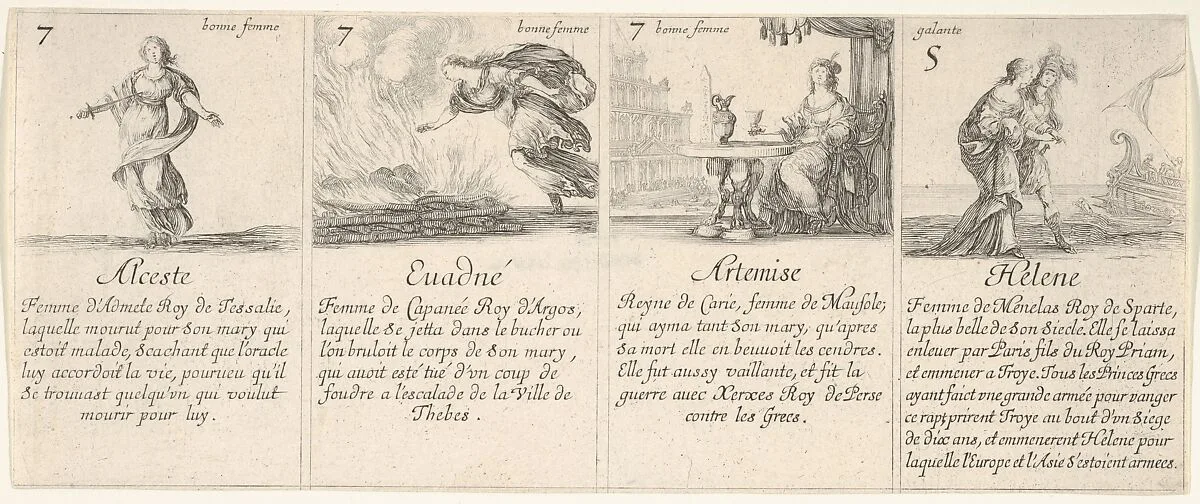 7
bonne femme
Alceste
Femme d'Admete Roy de Tessalie,
laquelle mourut pour son mary qui
estoit malade, scachant que l'oracle
luy accordoit la vie, pourueu qu'il
se trouuast quelqu'vn qui voulut
mourir pour luy.
7
bonne femme
Euadné
Femme de Capanée Roy d'Argos,
laquelle se jetta dans le bucher ou
l'on bruloit le corps de son mary,
qui auoit esté tué d'vn coup de
foudre a l'escalade de la Ville de
Thebes.
7
bonne femme
Artemise
Reyne de Carie, femme de Mausole;
qui ayma tant son mary, qu'apres
sa mort elle en beuuoit les cendres.
Elle fut aussy vaillante, et fit la
guerre auec Xerxes Roy de Perse
contre les Grecs.
galante
S
Hélene
Femme de Ménelas Roy de Sparte,
la plus belle de son siecle. Elle se laissa
enleuer par Paris fils du Roy Priam,
et emmener a Troye. Tous les Princes Grecs
ayant faict vne grande armée pour vanger
ce rapt, prirent Troye au bout d'vn siege
de dix ans, et emmenerent Hélene pour
laquelle l'Europe et l'Asie s'estoient armees.